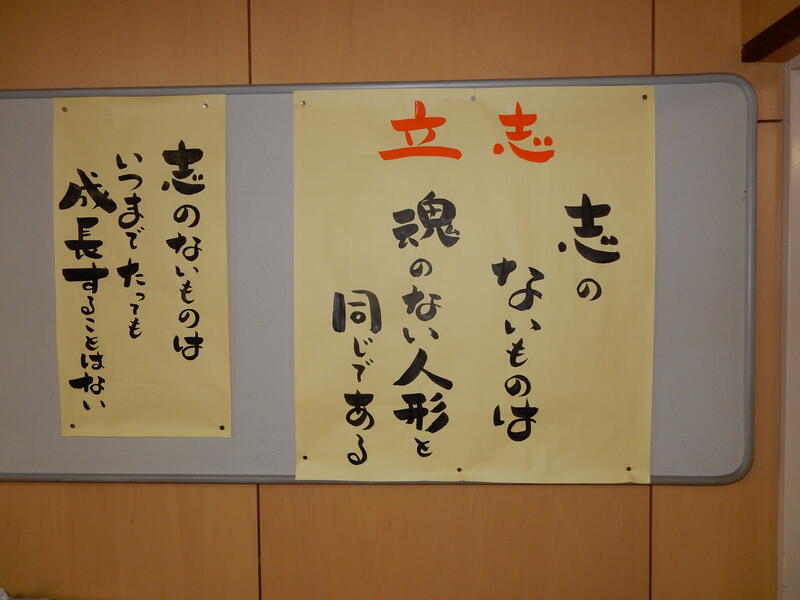 立志
志の
ないものは
魂のない人形と
同じである
志のないものは
いつまでたっても
成長することはない